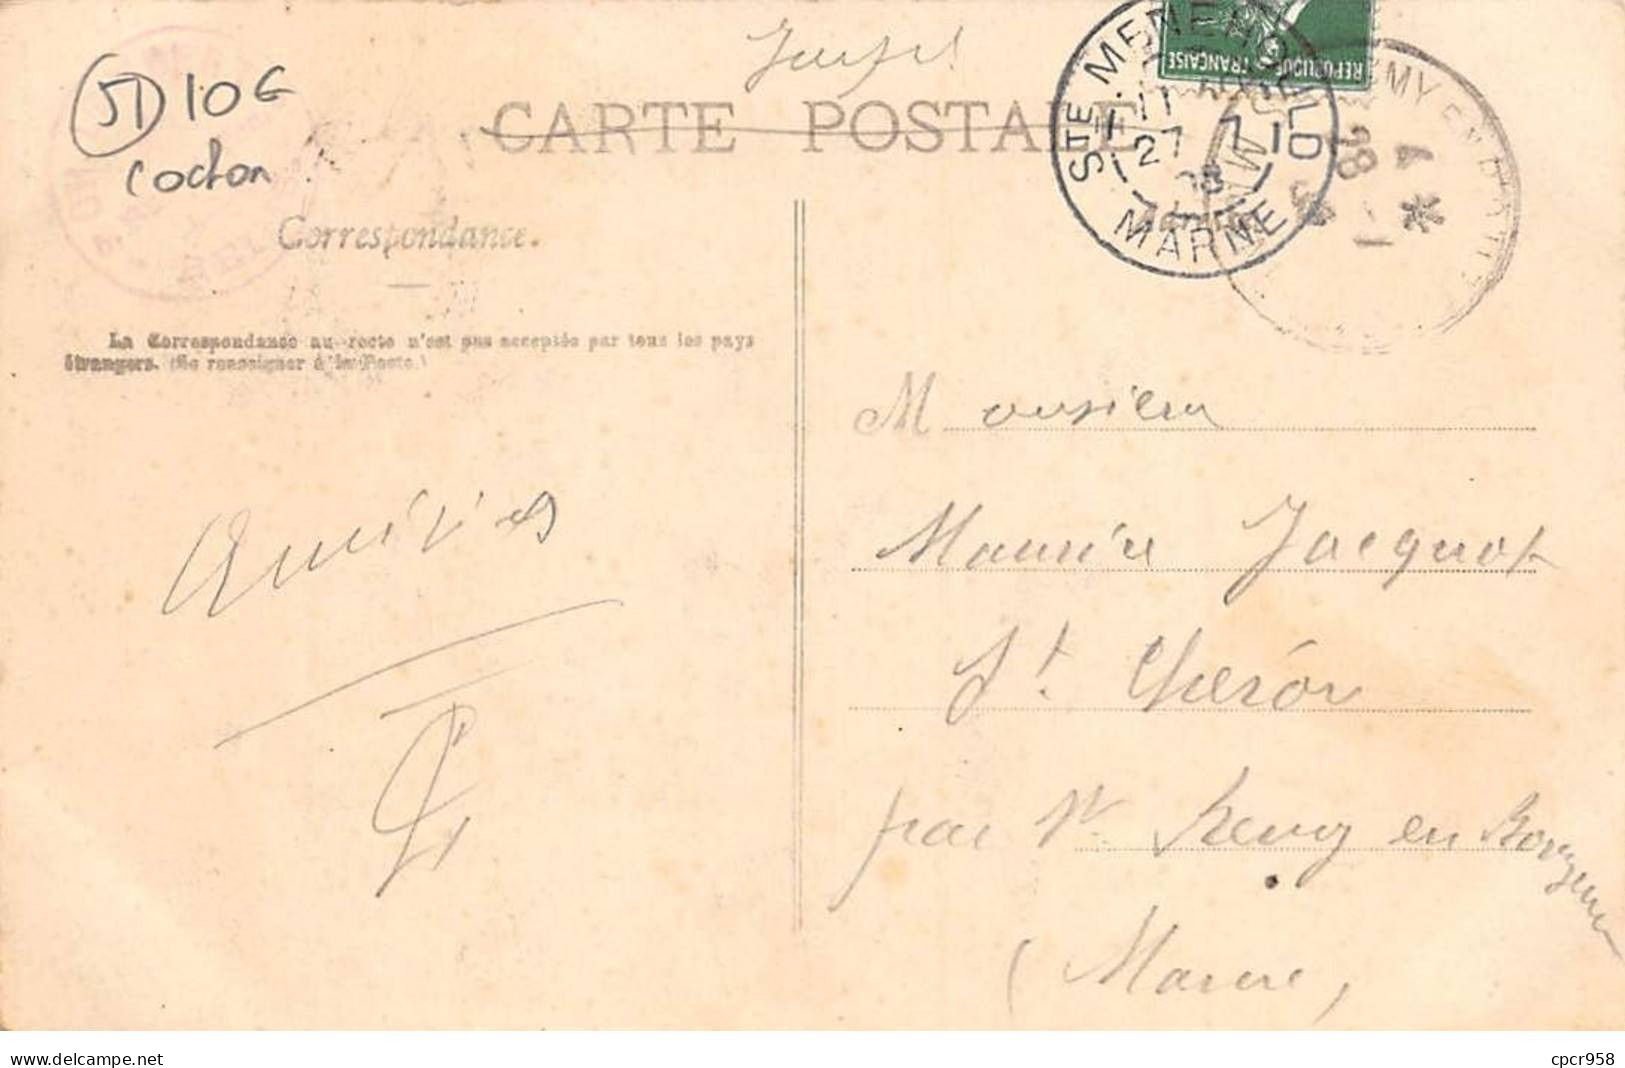 51 10€
cocton
CARTE POSTALE
STE MENEHOULD
11
27 - 1
08
MARNE
RÉPUBLIQUE FRANÇAISE
Correspondance.
La Correspondance au recto n'est pas acceptée par tous les pays
étrangers. (Se renseigner à la Poste.)
Monsieur
Maurice Jacquot
St. Chéron
par St Remy en Bouzemont
(Marne)
Amitiés
cpcr-delcampe.net
cpcr958